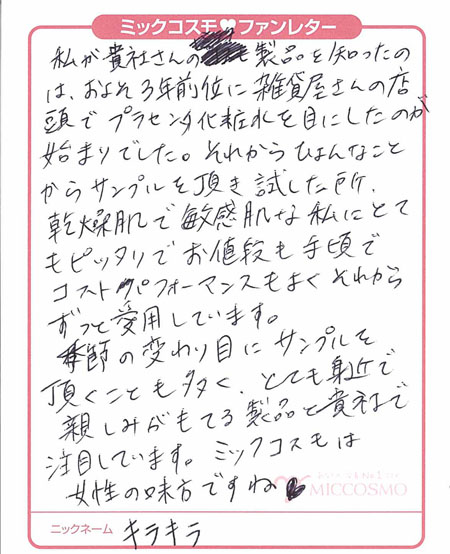 ミックコスモ♥ファンレター
私が貴社さんの製品を知ったの
は、およそ3年前位に雑貨屋さんの店
頭でプラセンタ化粧水を目にしたのが
始まりでした。それからひょんなこと
からサンプルを頂き試した所、
乾燥肌で敏感肌な私にとて
もピッタリでお値段も手頃で
コストパフォーマンスもよくそれから
ずっと愛用しています。
季節の変わり目にサンプルを
頂くことも多く、とても身近で
親しみがもてる製品と貴社で
注目しています。ミックコスモは
女性の味方ですね
MICCOSMO
ニックネーム キラキラ